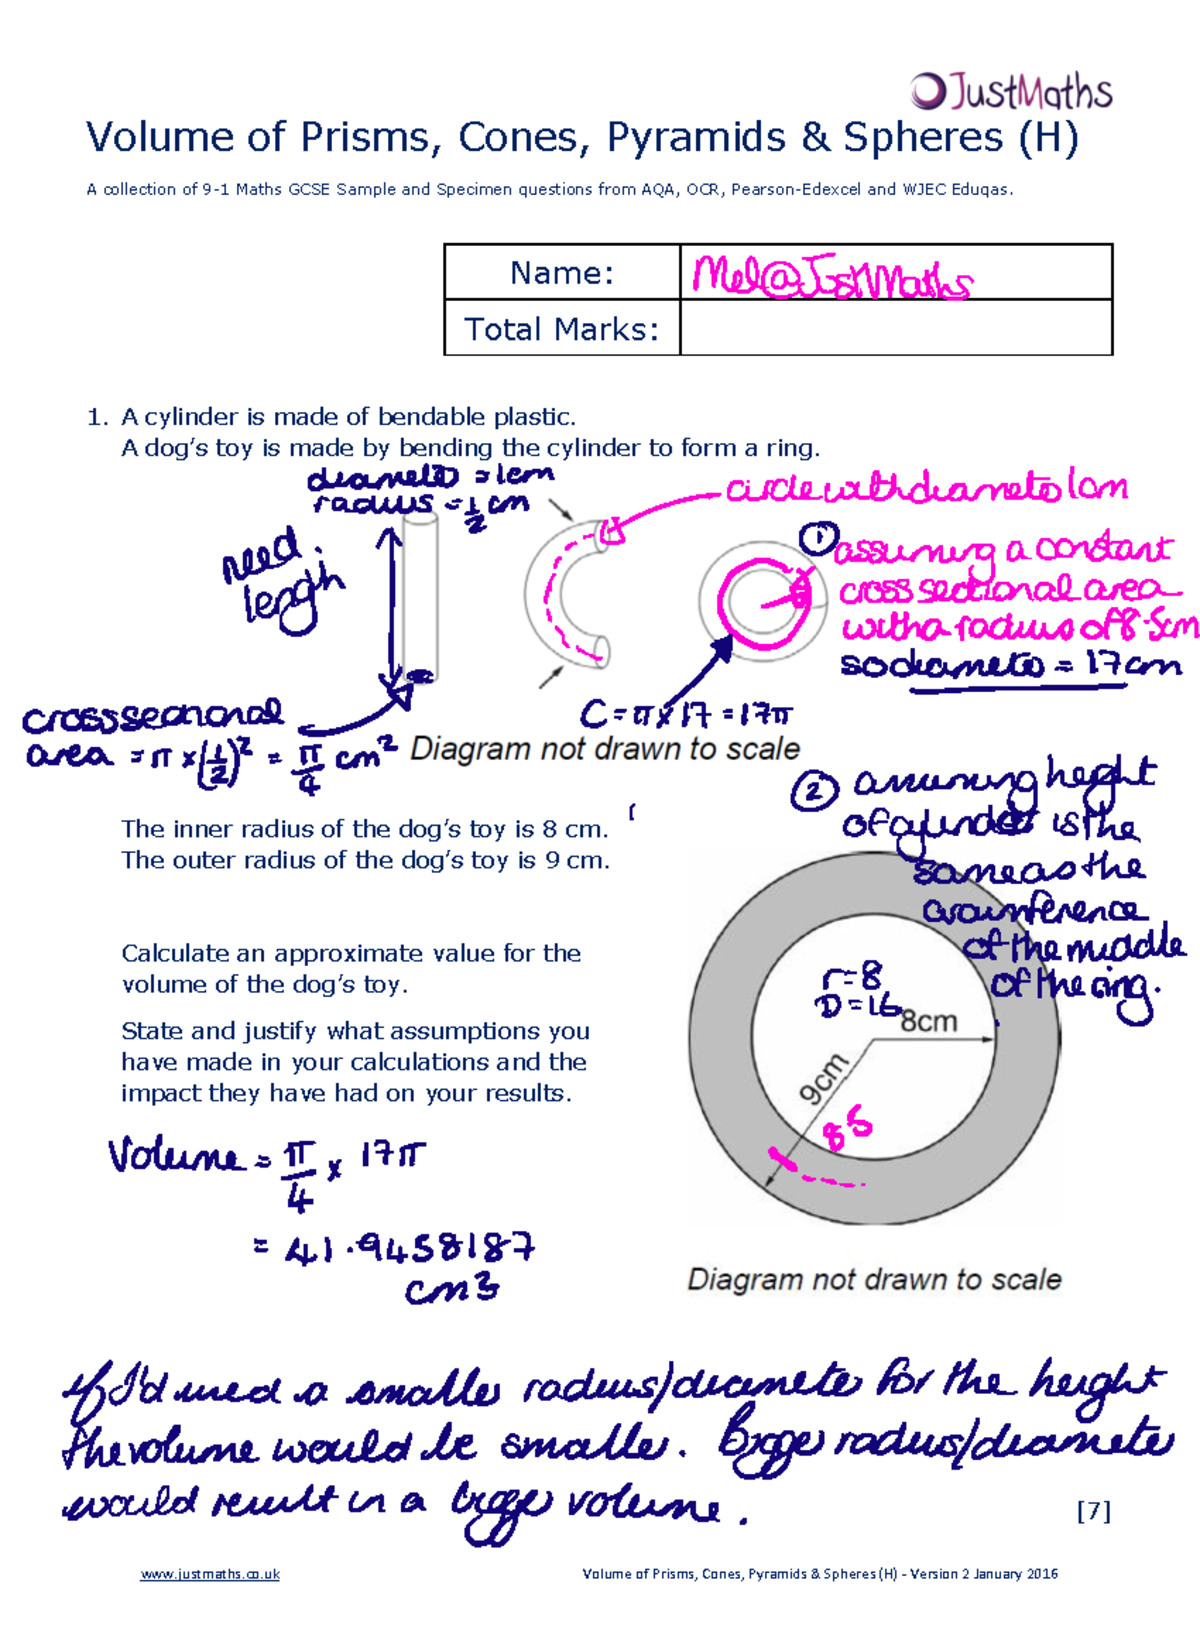 JustMaths
Volume of Prisms, Cones, Pyramids & Spheres (H)
A collection of 9-1 Maths GCSE Sample and Specimen questions from AQA, OCR, Pearson-Edexcel and WJEC Eduqas.
Name: Mel@JustMaths
Total Marks:
1. A cylinder is made of bendable plastic.
A dog's toy is made by bending the cylinder to form a ring.
diameter = 1cm
radius = 1/2 cm
need length
circle with diameter 1cm
① assuming a constant
cross sectional area
with a radius of 8.5cm
so diameter = 17cm
C = π × 17 = 17π
cross sectional
area = π × (1/2)² = π/4 cm²
Diagram not drawn to scale
② assuming height
of cylinder is the
same as the
circumference
of the middle
of the ring.
The inner radius of the dog's toy is 8 cm.
The outer radius of the dog's toy is 9 cm.
Calculate an approximate value for the
volume of the dog's toy.
State and justify what assumptions you
have made in your calculations and the
impact they have had on your results.
r = 8
D = 16
8cm
9cm
8.5
Volume = π/4 × 17π
= 41.9458187
cm3
Diagram not drawn to scale
If I'd used a smaller radius/diameter for the height
the volume would be smaller. Bigger radius/diameter
would result in a bigger volume.
[7]
www.justmaths.co.uk
Volume of Prisms, Cones, Pyramids & Spheres (H) - Version 2 January 2016